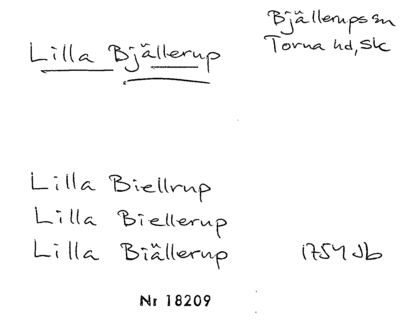 Bjällerups sn
Lilla Bjällerup
Torna hd, Sk
Lilla Biellrup
Lilla Biellerup
Lilla Biällerup 1754 Jb
Nr 18209